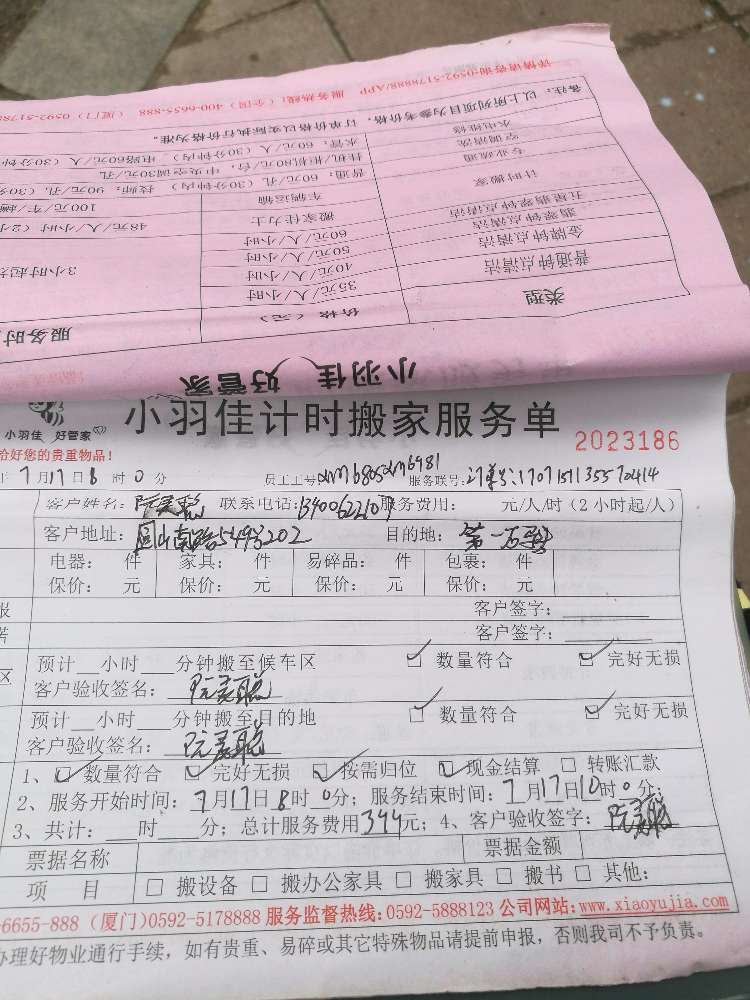 详情请咨询:0592-5178888/APP 服务热线:(全国) 400-6655-888 (厦门) 0592-51788
备注:以上所列项目为参考价格,订单价格以实际执行价格为准。
水电维修
水管:60元/人(30分钟内)
空调清洗
挂机机80元/台;中央空调30元/孔
专业疏通
普通:60元/孔(30分钟内) 技师:90元/孔(30分
计时搬家
车辆运输
100元/车/趟
搬家佳力士
48元/人/小时(2小
五星翡翠钟点清洁
60元/人/小时
翡翠钟点清洁
50元/人/小时
金牌钟点清洁
40元/人/小时
普通钟点清洁
35元/人/小时
3小时起
类型
价格(元)
服务时
小羽佳 好管家
小羽佳 好管家
小羽佳计时搬家服务单
2023186
给好您的贵重物品!
年7月17日8时0分 员工工号 服务联号:
客户姓名: 联系电话: 服务费用: 元/人/时(2小时起/人)
客户地址: 549号202 目的地:第一
电器: 件 家具: 件 易碎品: 件 包裹: 件
保价: 元 保价: 元 保价: 元 保价: 元
客户签字:
客户签字:
预计 小时 分钟搬至候车区 数量符合 完好无损
客户验收签名:
预计 小时 分钟搬至目的地 数量符合 完好无损
客户验收签名:
1、数量符合 完好无损 按需归位 现金结算 转账汇款
2、服务开始时间:7月17日8时0分;服务结束时间:7月17日10时0分;
3、共计: 时 分;总计服务费用344元;4、客户验收签字:
票据名称 票据金额
项 目 搬设备 搬办公家具 搬家具 搬书 其他:
-6655-888 (厦门)0592-5178888 服务监督热线:0592-5888123 公司网站:www.xiaoyujia.com
办理好物业通行手续,如有贵重、易碎或其它特殊物品请提前申报,否则我司不予负责。